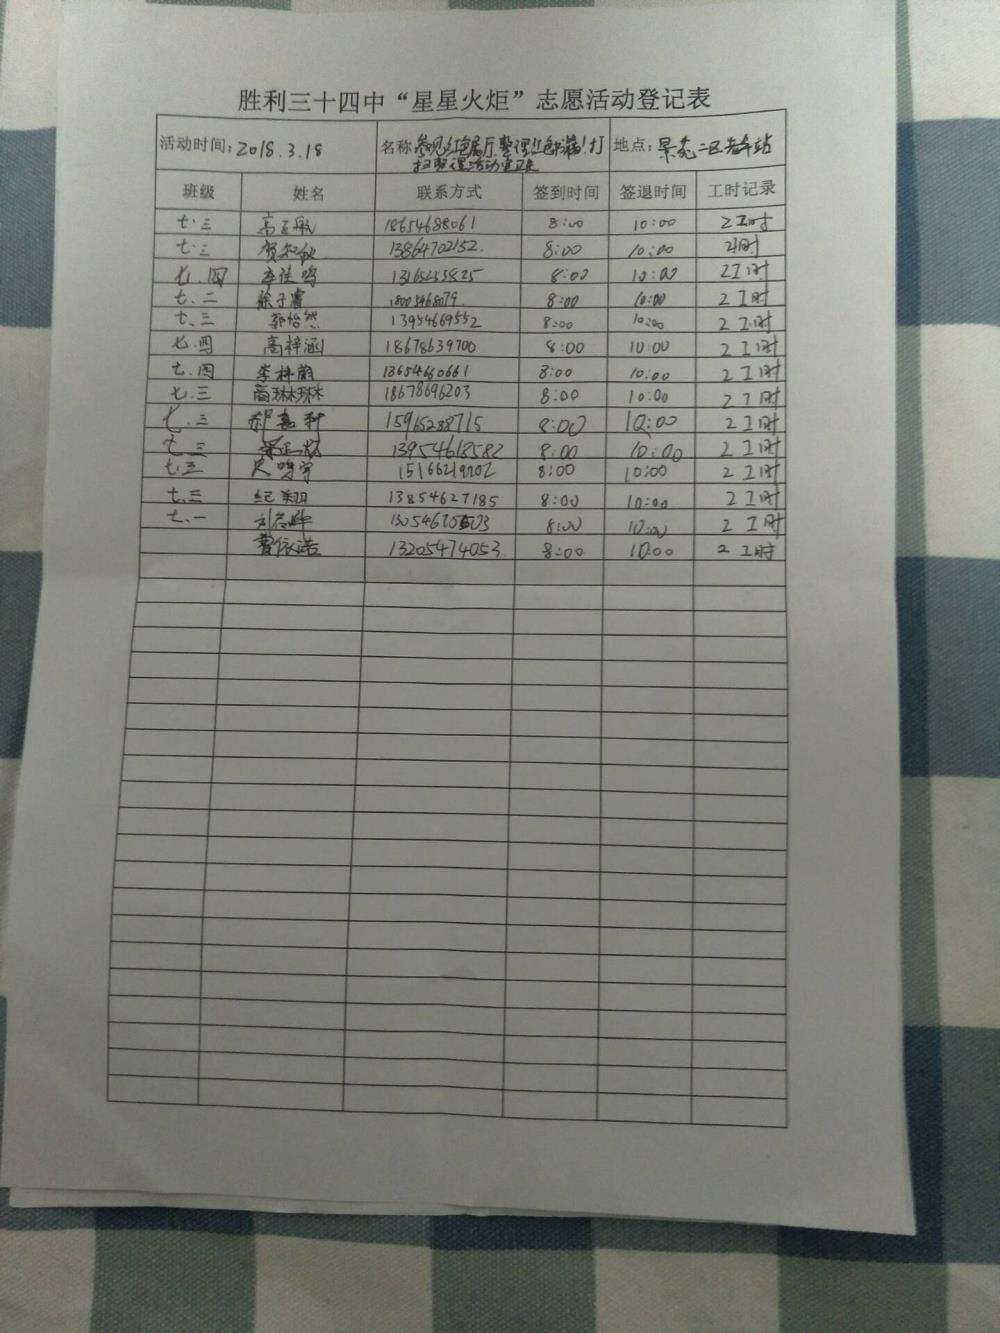 胜利三十四中“星星火炬”志愿活动登记表
活动时间:2018.3.18 名称 地点:景苑二区
扫 活动室卫生
班级 姓名 联系方式 签到时间 签退时间 工时记录
七.三 18654688061 8:00 10:00 2工时
七.三 贺 13864702152. 8:00 10:00 工时
七.四 李佳鸣 13165255825 8:00 10:00 2工时
七.二 徐子睿 18005468079. 8:00 10:00 2工时
七.三 郭怡然 13954669552 8:00 10:00 2工时
七.四 高梓涵 18678639700 8:00 10:00 2工时
七.四 李梓萌 18654660661 8:00 10:00 2工时
七.三 商琳琳 18678696203 8:00 10:00 2工时
七.三 郝 15965288715 8:00 10:00 2工时
七.三 13954618582 8:00 10:00 2工时
七.三 鸣宇 15166219202 8:00 10:00 2工时
七.三 纪翔 13854627185 8:00 10:00 2工时
七.一 刘 8:00 10:00 2工时
曹依诺 13205474053. 8:00 10:00 2工时